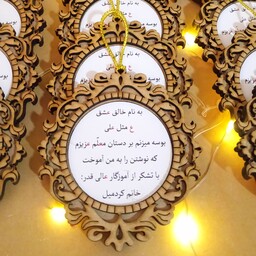 به نام خالق عشق
ع مثل علی
بوسه میزنم بر دستان معلّم عزیزم
که نوشتن را به من آموخت
با تشکر از آموزگار عالی قدر:
خانم کردمیل